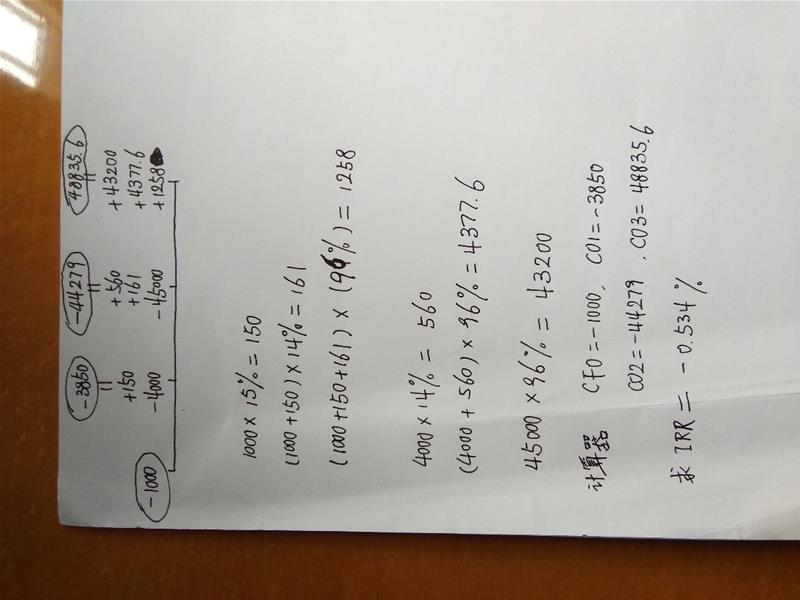 -1000 -3850 -44279 48835.6
+150 +560 +43200
-4000 +161 +4377.6
-45000 +1258
1000×15%=150
(1000+150)×14%=161
(1000+150+161)×(96%)=1258
4000×14%=560
(4000+560)×96%=4377.6
45000×96%=43200
计算器 CF0=-1000, C01=-3850
C02=-44279, C03=48835.6
求 IRR=-0.534%